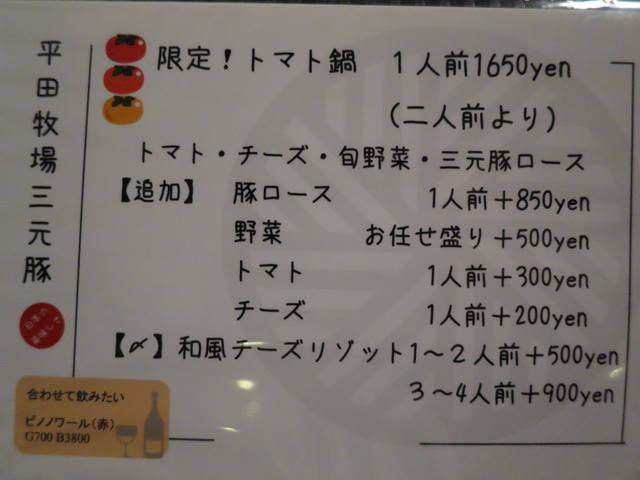 平田牧場三元豚
限定！トマト鍋 1人前1650yen
(二人前より)
トマト・チーズ・旬野菜・三元豚ロース
【追加】 豚ロース 1人前+850yen
野菜 お任せ盛り+500yen
トマト 1人前+300yen
チーズ 1人前+200yen
【〆】和風チーズリゾット1～2人前+500yen
3～4人前+900yen
日本の
美味しさ
合わせて飲みたい
ピノノワール(赤)
G700 B3800